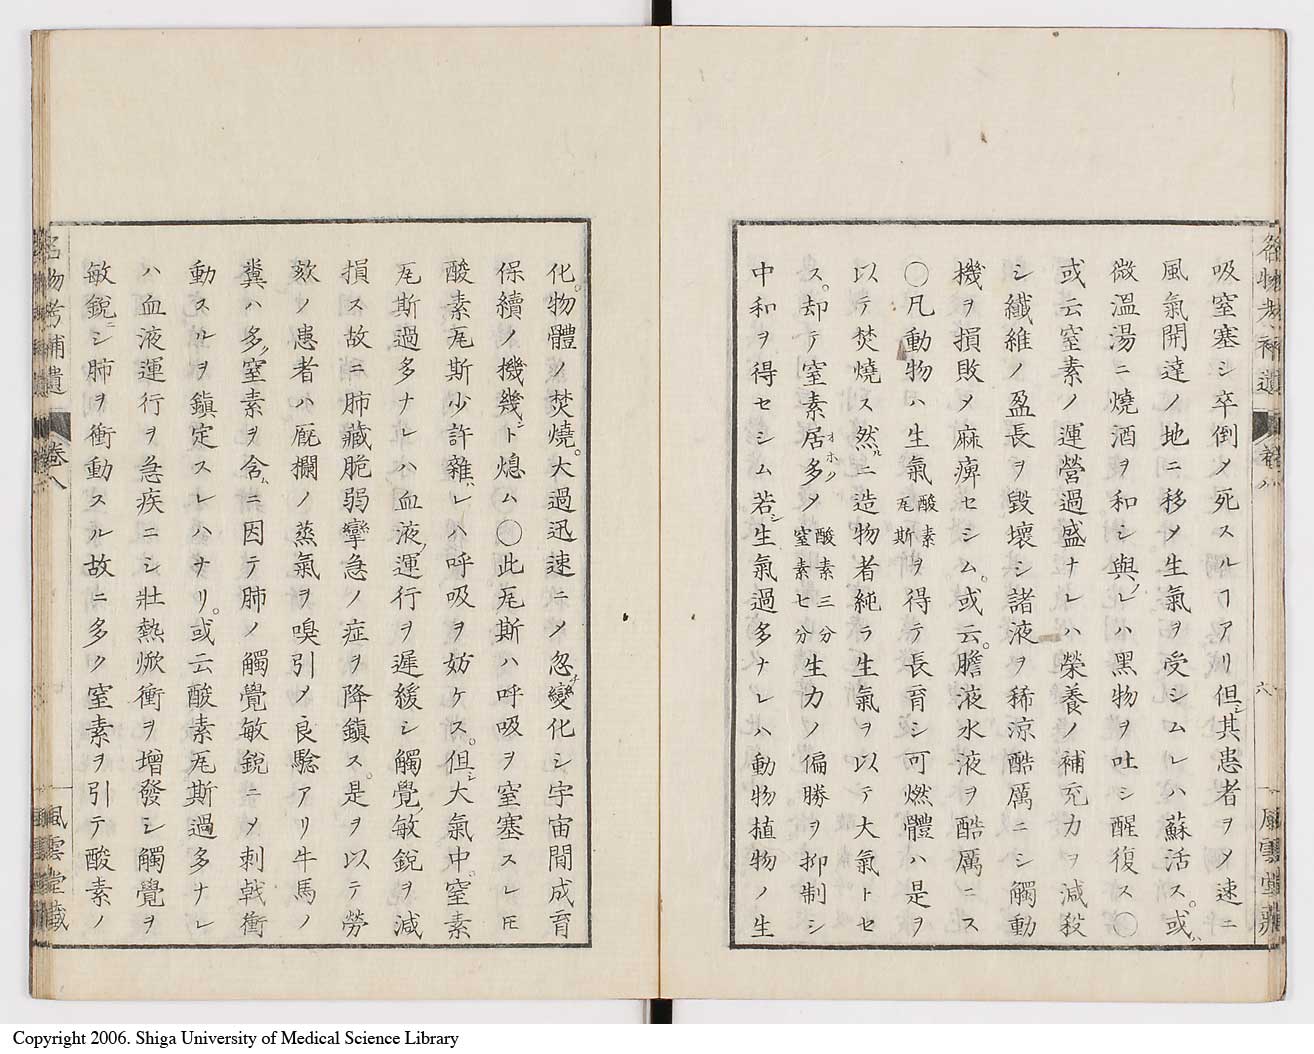 吸窒塞シ卒倒〆死スルヿアリ但シ其患者ヲ〆速ニ
風氣開達ノ地ニ移〆生氣ヲ受シムレハ蘇活ス。或ハ
微溫湯ニ燒酒ヲ和シ與フレハ黑物ヲ吐シ醒復ス〇
或云窒素ノ運營過盛ナレハ榮養ノ補充力ヲ減殺
シ纖維ノ盈長ヲ毀壞シ諸液ヲ稀凉酷厲ニシ觸動
機ヲ損敗〆麻痺セシム。或云。膽液水液ヲ酷厲ニス
〇凡動物ハ生氣酸素瓦斯ヲ得テ長育シ可燃體ハ是ヲ
以テ焚燒ス然ルニ造物者純ラ生氣ヲ以テ大氣トセ
ス。却テ窒素居多オホク〆酸素三分窒素七分生力ノ偏勝ヲ抑制シ
中和ヲ得セシム若シ生氣過多ナレハ動物植物ノ生
名物考補遺
卷八
六
風雲堂藏
化。物體ノ焚燒。大過迅速ニ〆忽チ變化シ宇宙間成育
保續ノ機幾ント熄ム〇此瓦斯ハ呼吸ヲ窒塞スレ𪜈
酸素瓦斯少許雜レハ呼吸ヲ妨ケス。但シ大氣中。窒素
瓦斯過多ナレハ血液ノ運行ヲ遲緩シ觸覺ノ敏銳ヲ減
損ス故ニ肺藏脆弱攣急ノ症ヲ降鎭ス。是ヲ以テ勞
欬ノ患者ハ廐攔ノ蒸氣ヲ嗅引〆良驗アリ牛馬ノ
糞ハ多ク窒素ヲ含ム因テ肺ノ觸覺敏銳ニ〆刺戟衝
動スルヲ鎭定スレハナリ。或云酸素瓦斯過多ナレ
ハ血液運行ヲ急疾ニシ壯熱焮衝ヲ增發シ觸覺ヲ
敏銳ニシ肺ヲ衝動スル故ニ多ク窒素ヲ引テ酸素ノ
名物考補遺
卷八
風雲堂藏
Copyright 2006. Shiga University of Medical Science Library